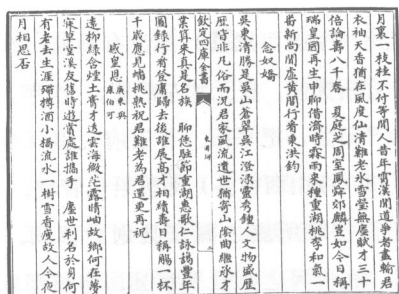 月裏一枝挂不付等閒人昔年霄漢閒道爭者盡輸君
衣袖天香猶在風度仙清難老冰雪瑩無塵賦才三十
倍論壽八千春　夏庭芝周室鳳舜郊麟豈如今日稱
瑞皇國再生申聊借濟時霖雨來種重湖桃李和氣一
番新尚聞虛黄閣行看秉洪鈞
念奴嬌
吳東清勝是吳山蒼翠吳江澄淥靈秀鍾人文物盛歷
歷皆非凡俗而況君家風流遺世猶寄山陰曲繼承才
欽定四庫全書
東甫詞
業算來真是名族　聊憑駐節重湖惠歌仁詠謁豐年
圖錄行看登庸歸去後誰展高才相續壽日稱觴一杯
千歲應見蟠桃熟祝君難老為君還更再祝
感皇恩 廣東與康伯可
遠柳綠含煙土膏才透雲海微茫露晴岫故鄉何在夢
寐草堂溪友舊時遊賞處誰攜手　塵世利名於身何
有老去生涯殢樽酒小橋流水一樹雪香瘦故人今夜
月相思否